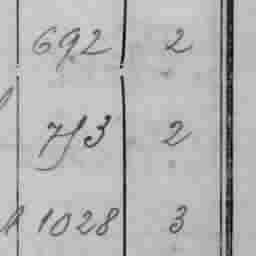 692 2
753 2
1028 3